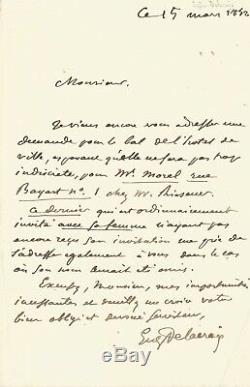 Ce 15 mars 1832
Monsieur,
Je viens encore vous adresser une
demande pour le bal de l'hotel de
ville, esperant qu'elle ne sera pas trop
indiscrète, pour Mr. Morel rue
Bayart no. 1 chez Mr.
Ce dernier qui est ordinairement
invité avec sa femme n'ayant pas
encore reçu son invitation me prie de
m'adresser également à vous dans le cas
où son nom aurait été omis.
Excusez, Monsieur, mes importunités
incessantes et veuillez me croire votre
bien obligé et devoué serviteur,
Eug Delacroix